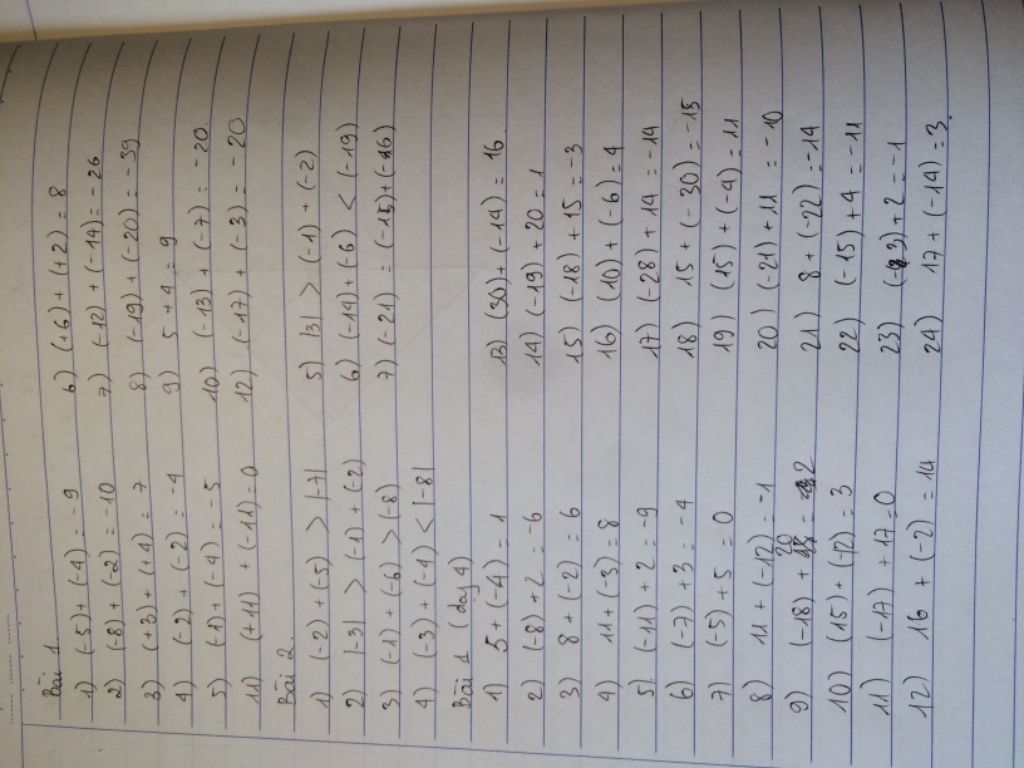 Bài 1
1) (-5) + (-4) = -9 6) (+6) + (+2) = 8
2) (-8) + (-2) = -10 7) (-12) + (-14) = -26
3) (+3) + (+4) = 7 8) (-19) + (-20) = -39
4) (-2) + (-2) = -4 9) 5 + 4 = 9
5) (-1) + (-4) = -5 10) (-13) + (-7) = -20
11) (+11) + (-11) = 0 12) (-17) + (-3) = -20
Bài 2
1) (-2) + (-5) > |-7| 5) |3| > (-1) + (-2)
2) |-3| > (-1) + (-2) 6) (-14) + (-6) < (-19)
3) (-1) + (-6) > (-8) 7) (-21) = (-15) + (-16)
4) (-3) + (-1) < |-8|
Bài 1 (dạy 4)
1) 5 + (-4) = 1 13) (30) + (-14) = 16
2) (-8) + 2 = -6 14) (-19) + 20 = 1
3) 8 + (-2) = 6 15) (-18) + 15 = -3
4) 11 + (-3) = 8 16) (10) + (-6) = 4
5) (-11) + 2 = -9 17) (-28) + 14 = -14
6) (-7) + 3 = -4 18) 15 + (-30) = -15
7) (-5) + 5 = 0 19) (15) + (-4) = 11
8) 11 + (-12) = -1 20) (-21) + 11 = -10
9) (-18) + 20 = 2 21) 8 + (-22) = -14
10) (15) + (-12) = 3 22) (-15) + 4 = -11
11) (-17) + 17 = 0 23) (-3) + 2 = -1
12) 16 + (-2) = 14 24) 17 + (-14) = 3.